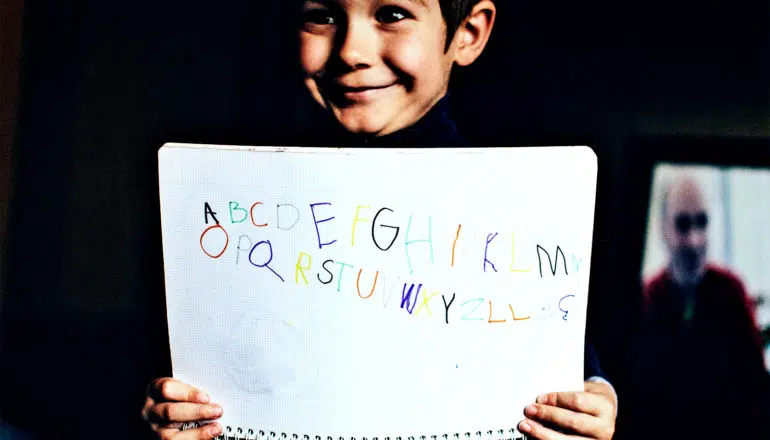 ABCDEFGHIKLMN
OPQRSTUVWXYZLL